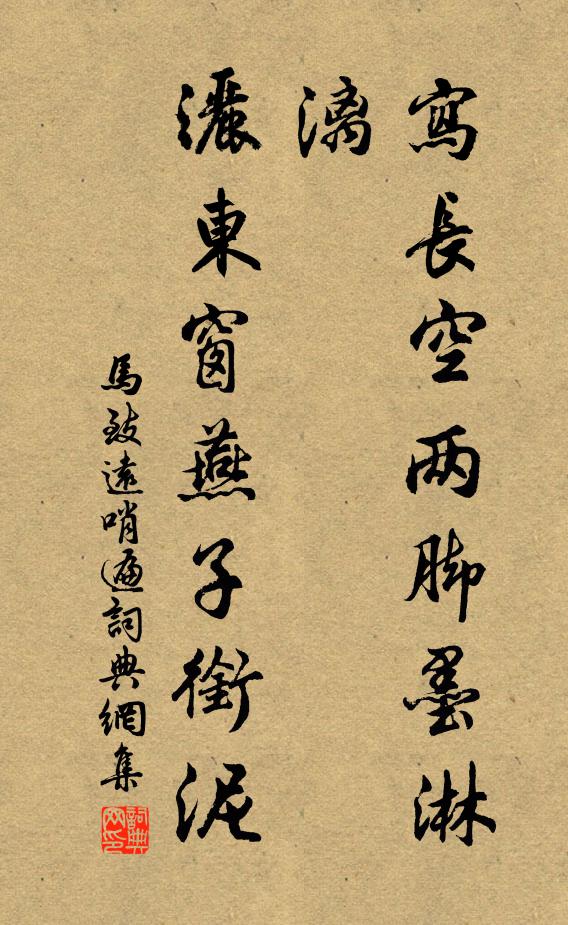 寫長空兩脚墨淋
漓
灑東窗燕子銜泥
馬致遠哨遍詞典網集
詞典网印